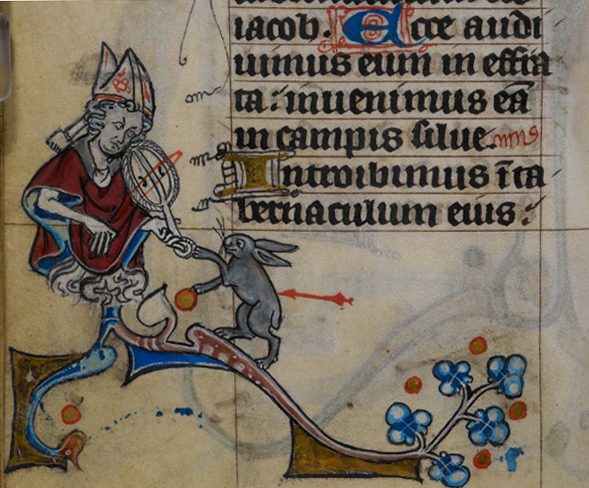 iacob. Ecce audi
uimus eum in effra
ta: inuenimus eā
in campis silue
Introibimus ī ta
bernaculum eius: